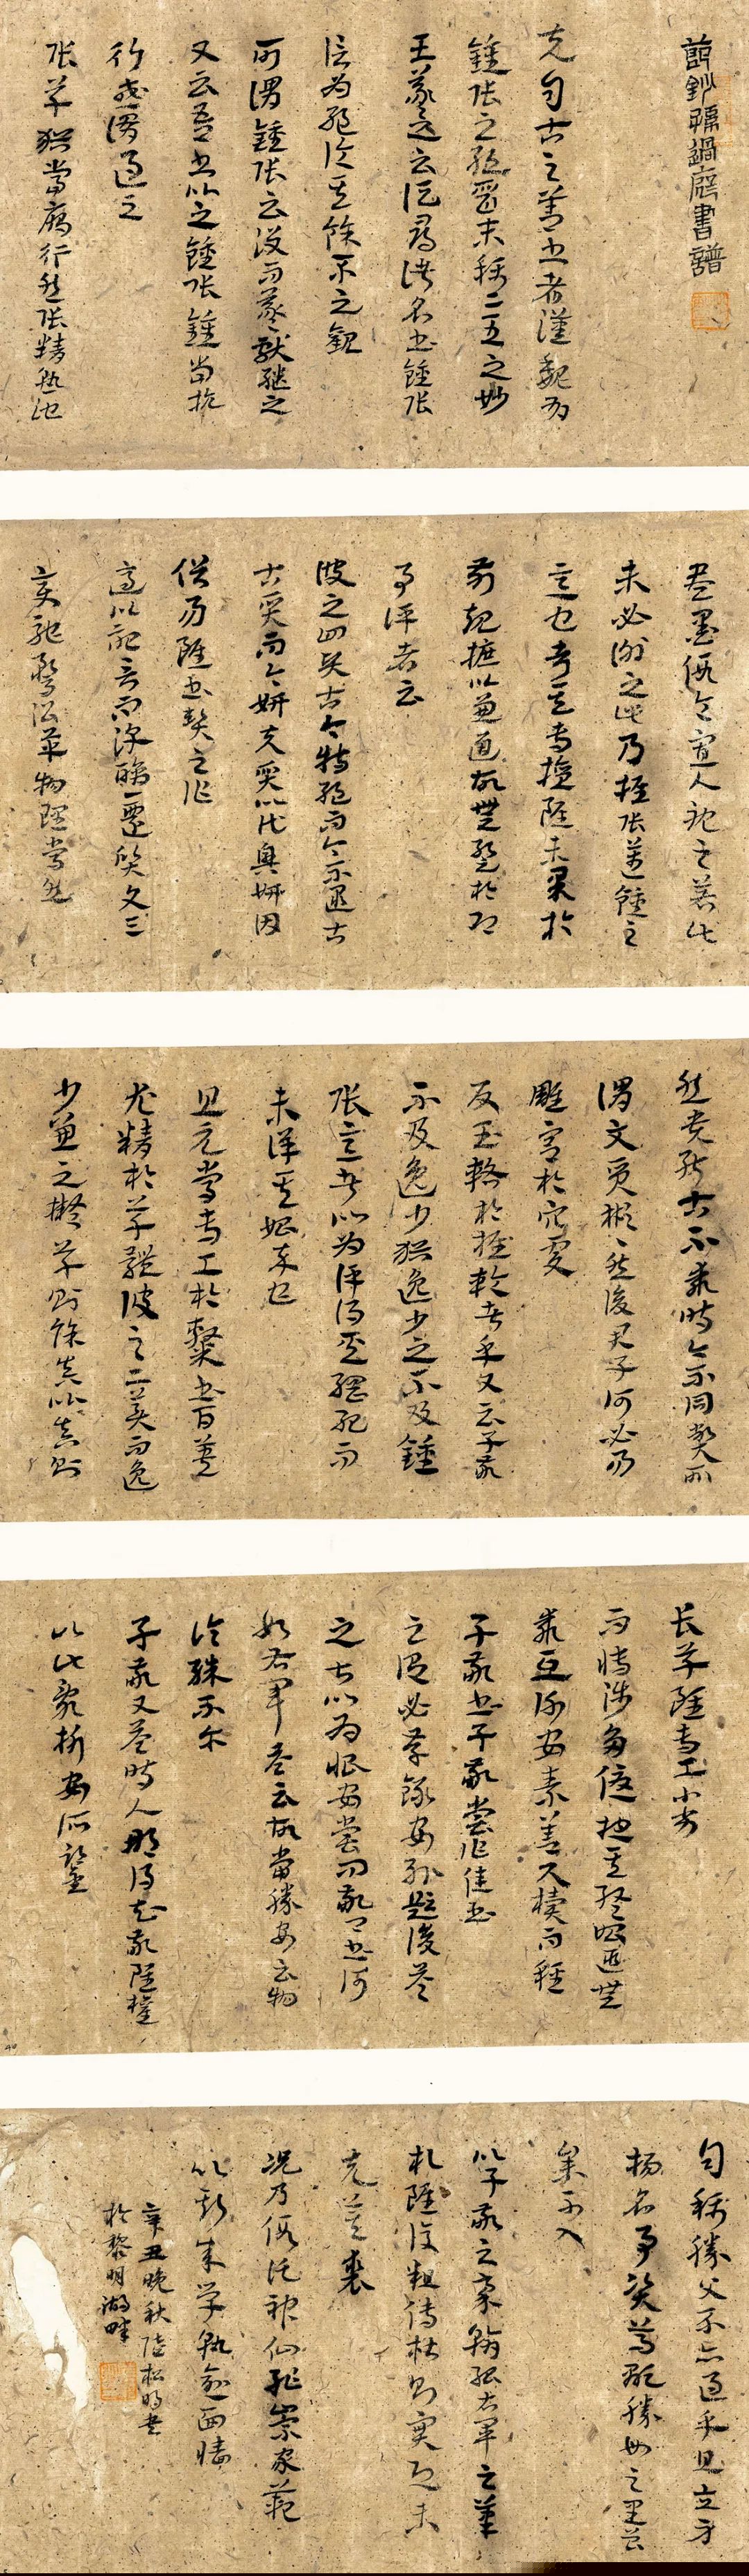 節鈔孫過庭書譜
夫自古之善書者漢魏有
鍾張之絕晉末稱二王之妙
王羲之云頃尋諸名書鍾張
信為絕倫其餘不足觀
可謂鍾張云沒而羲獻繼之
又云吾書比之鍾張鍾當抗
行或謂過之
張草猶當雁行然張精熟池
盡墨假令寡人耽之若此
未必謝之此乃推張邁鍾之
意也考其專擅雖未果於
前規摭以兼通故無慚於即
事評者云
彼之四賢古今特絕而今不逮古
古質而今妍夫質以代興妍因
俗易雖書契之作
適以記言而淳醨一遷質文三
變馳騖沿革物理常然
然貴能古不乖時今不同弊所
謂文質彬彬然後君子何必易
雕宮於穴處
反玉輅於椎輪者乎又云子敬
不及逸少猶逸少之不及鍾
張意者以為評得其綱紀而
未詳其始卒也
且元常專工於隸書百英
尤精於草體彼之二美而逸
少兼之擬草則餘真比真則
長草雖專工小劣
而博涉多優總其終始匪無
乖互謝安素善尺牘而輕
子敬書子敬嘗作佳書
之謂必存錄安輒題後答
之甚以為恨安嘗問敬卿書何
如右軍答云故當勝安云物
論殊不爾
子敬又答時人那得知敬雖權
以此辭折安所鑒
自稱勝父不亦過乎且立身
揚名事資尊顯勝母之里曾
參不入
以子敬之豪翰紹右軍之筆
札雖復粗傳楷則實恐未
克箕裘
況乃假託神仙恥崇家範
以斯成學孰愈面牆
辛丑晚秋陸松明書
於黎明湖畔